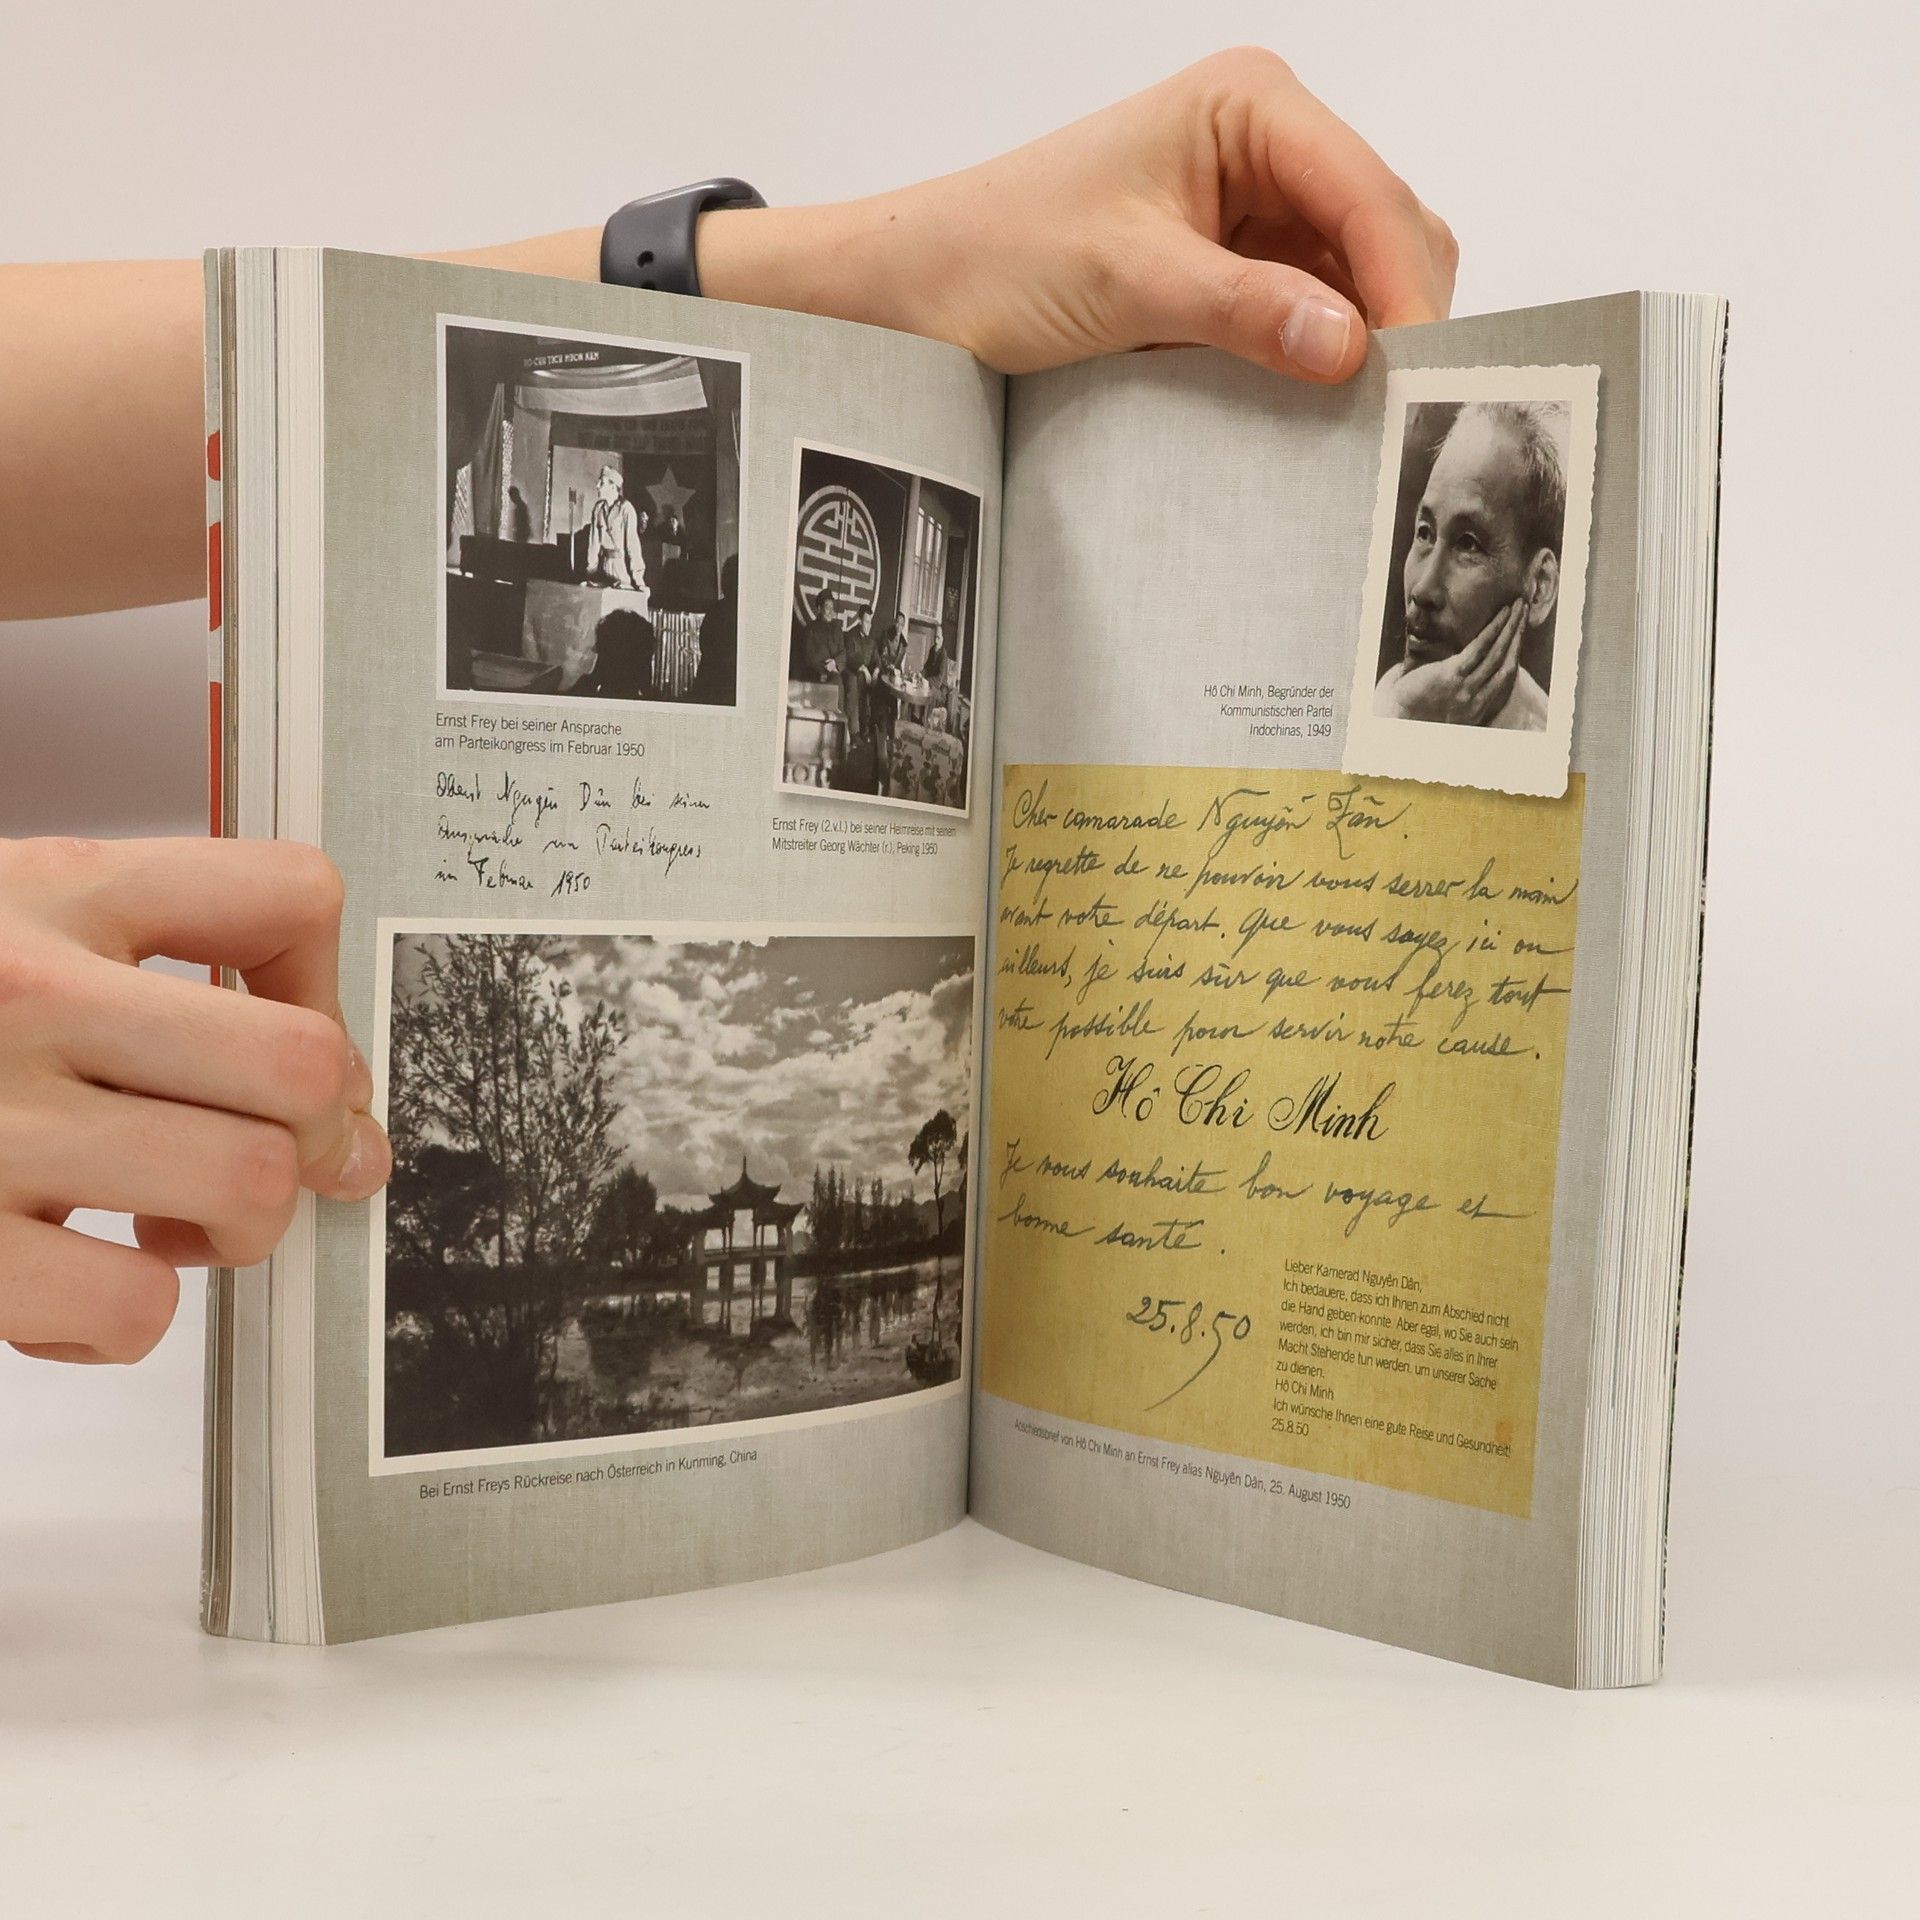 HO-CHU TICH MUON NAM
Ernst Frey bei seiner Ansprache
am Parteikongress im Februar 1950
Oberst Nguyên Dân bei seiner
Ansprache am Parteikongress
im Februar 1950
Ernst Frey (2.v.l.) bei seiner Heimreise mit seinem
Mitstreiter Georg Wächter (r.), Peking 1950
Bei Ernst Freys Rückreise nach Österreich in Kunming, China
Hô Chi Minh, Begründer der
Kommunistischen Partei
Indochinas, 1949
Cher camarade Nguyên Zân.
Je regrette de ne pouvoir vous serrer la main
avant votre départ. Que vous soyez ici ou
ailleurs, je suis sûr que vous ferez tout
votre possible pour servir notre cause.
Hô Chi Minh
Je vous souhaite bon voyage et
bonne santé.
25.8.50
Lieber Kamerad Nguyên Dân,
Ich bedauere, dass ich Ihnen zum Abschied nicht
die Hand geben konnte. Aber egal, wo Sie auch sein
werden, ich bin mir sicher, dass Sie alles in Ihrer
Macht Stehende tun werden. um unserer Sache
zu dienen.
Hô Chi Minh
Ich wünsche Ihnen eine gute Reise und Gesundheit!
25.8.50
Abschiedsbrief von Hô Chi Minh an Ernst Frey alias Nguyên Dân, 25. August 1950